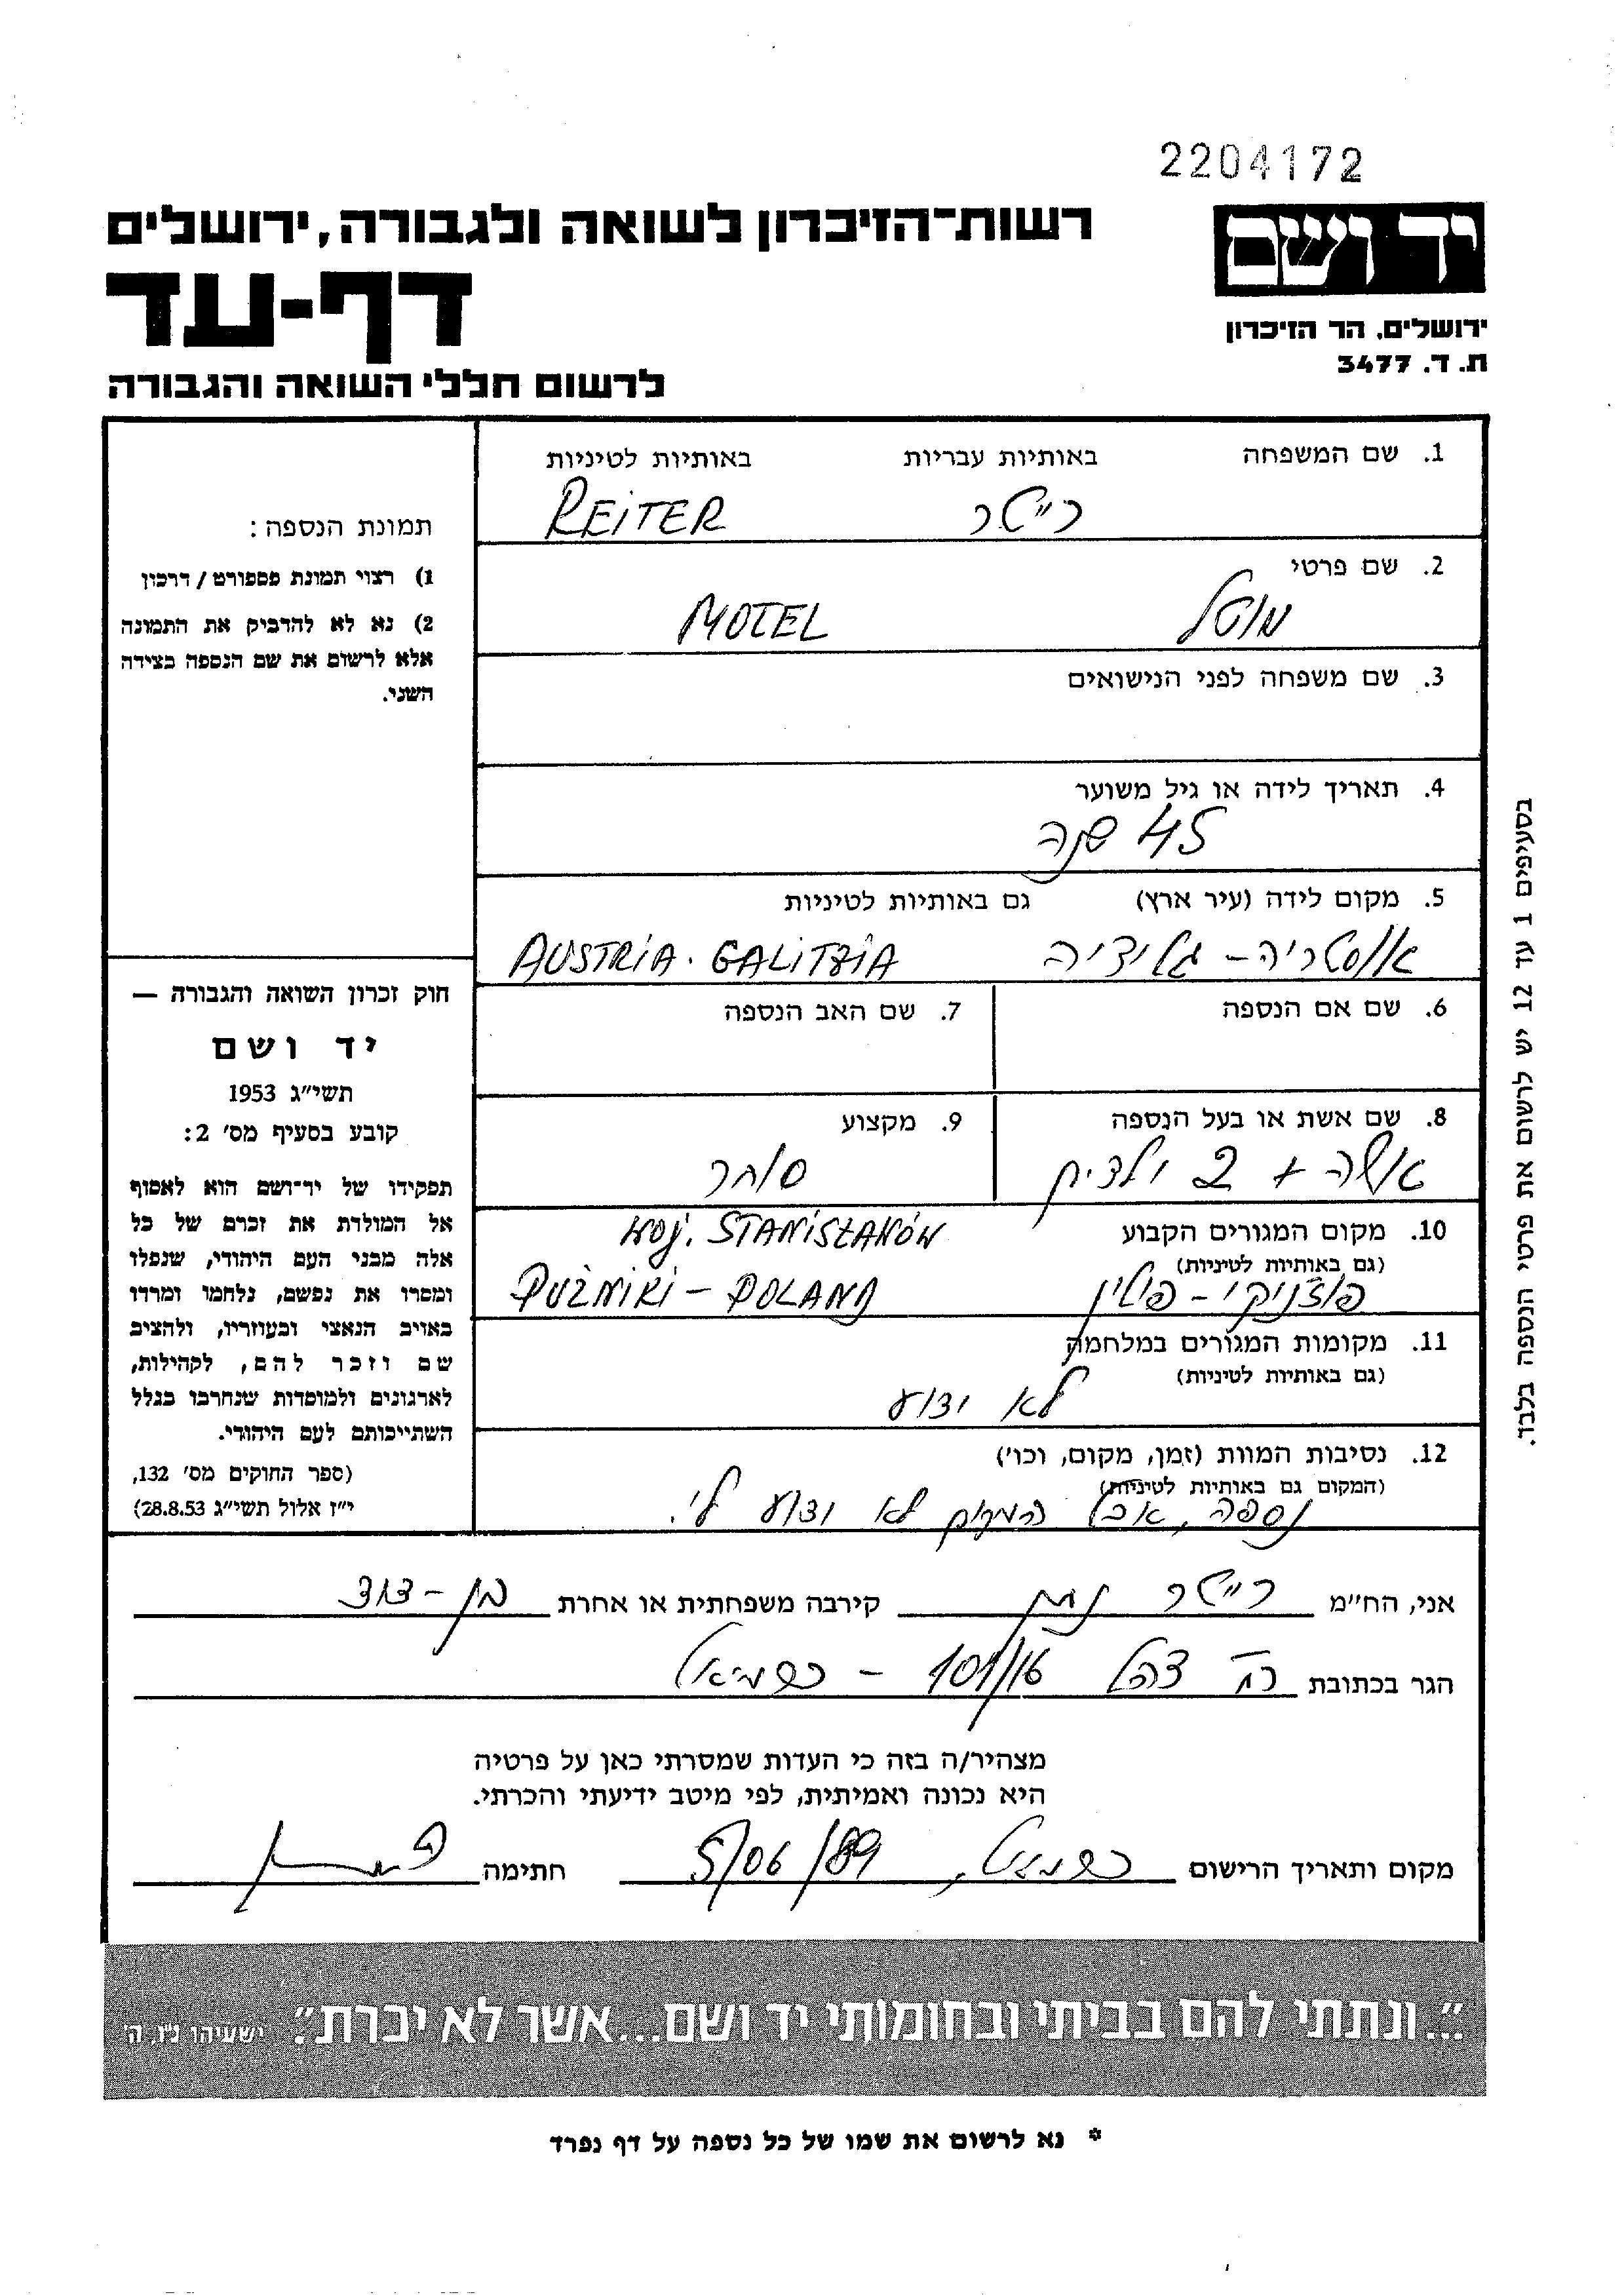 2204172
יד ושם
ירושלים. הר הזיכרון
ת. ד. 3477
רשות־הזיכרון לשואה ולגבורה, ירושלים
דף-עד
לרשום חללי השואה והגבורה
1. שם המשפחה באותיות עבריות באותיות לטיניות
רייטר REITER
2. שם פרטי
מוטל MOTEL
3. שם משפחה לפני הנישואים
4. תאריך לידה או גיל משוער
45 שנה
5. מקום לידה (עיר ארץ) גם באותיות לטיניות
אוסטריה - גליציה AUSTRIA. GALITZIA
6. שם אם הנספה 7. שם האב הנספה
8. שם אשת או בעל הנספה 9. מקצוע
אשה + 2 ילדים סוחר
10. מקום המגורים הקבוע WOJ. STANISŁAWÓW
(גם באותיות לטיניות)
פוזניקי - פולין PUŹNIKI - POLAND
11. מקומות המגורים במלחמה
(גם באותיות לטיניות)
לא ידוע
12. נסיבות המוות (זמן, מקום, וכו')
(המקום גם באותיות לטיניות)
נספה, אבל המקום לא ידוע לי.
תמונת הנספה:
1) רצוי תמונת פספורט / דרכון
2) נא לא להדביק את התמונה
אלא לרשום את שם הנספה בצידה
השני.
חוק זכרון השואה והגבורה —
יד ושם
תשי״ג 1953
קובע בסעיף מס׳ 2:
תפקידו של יד־ושם הוא לאסוף
אל המולדת את זכרם של כל
אלה מבני העם היהודי, שנפלו
ומסרו את נפשם, נלחמו ומרדו
באויב הנאצי ובעוזריו, ולהציב
שם וזכר להם, לקהילות,
לארגונים ולמוסדות שנחרבו בגלל
השתייכותם לעם היהודי.
(ספר החוקים מס׳ 132,
י״ז אלול תשי״ג 28.8.53)
בסעיפים 1 עד 12 יש לרשום את פרטי הנספה בלבד.
אני, הח״מ רייטר נתן קירבה משפחתית או אחרת בן-דוד
הגר בכתובת צהל 101/16 - כרמיאל
מצהיר/ה בזה כי העדות שמסרתי כאן על פרטיה
היא נכונה ואמיתית, לפי מיטב ידיעתי והכרתי.
מקום ותאריך הרישום כרמיאל, 5/06/89 חתימה
״...ונתתי להם בביתי ובחומותי יד ושם...אשר לא יכרת״. ישעיהו נ״ו, ה׳
* נא לרשום את שמו של כל נספה על דף נפרד